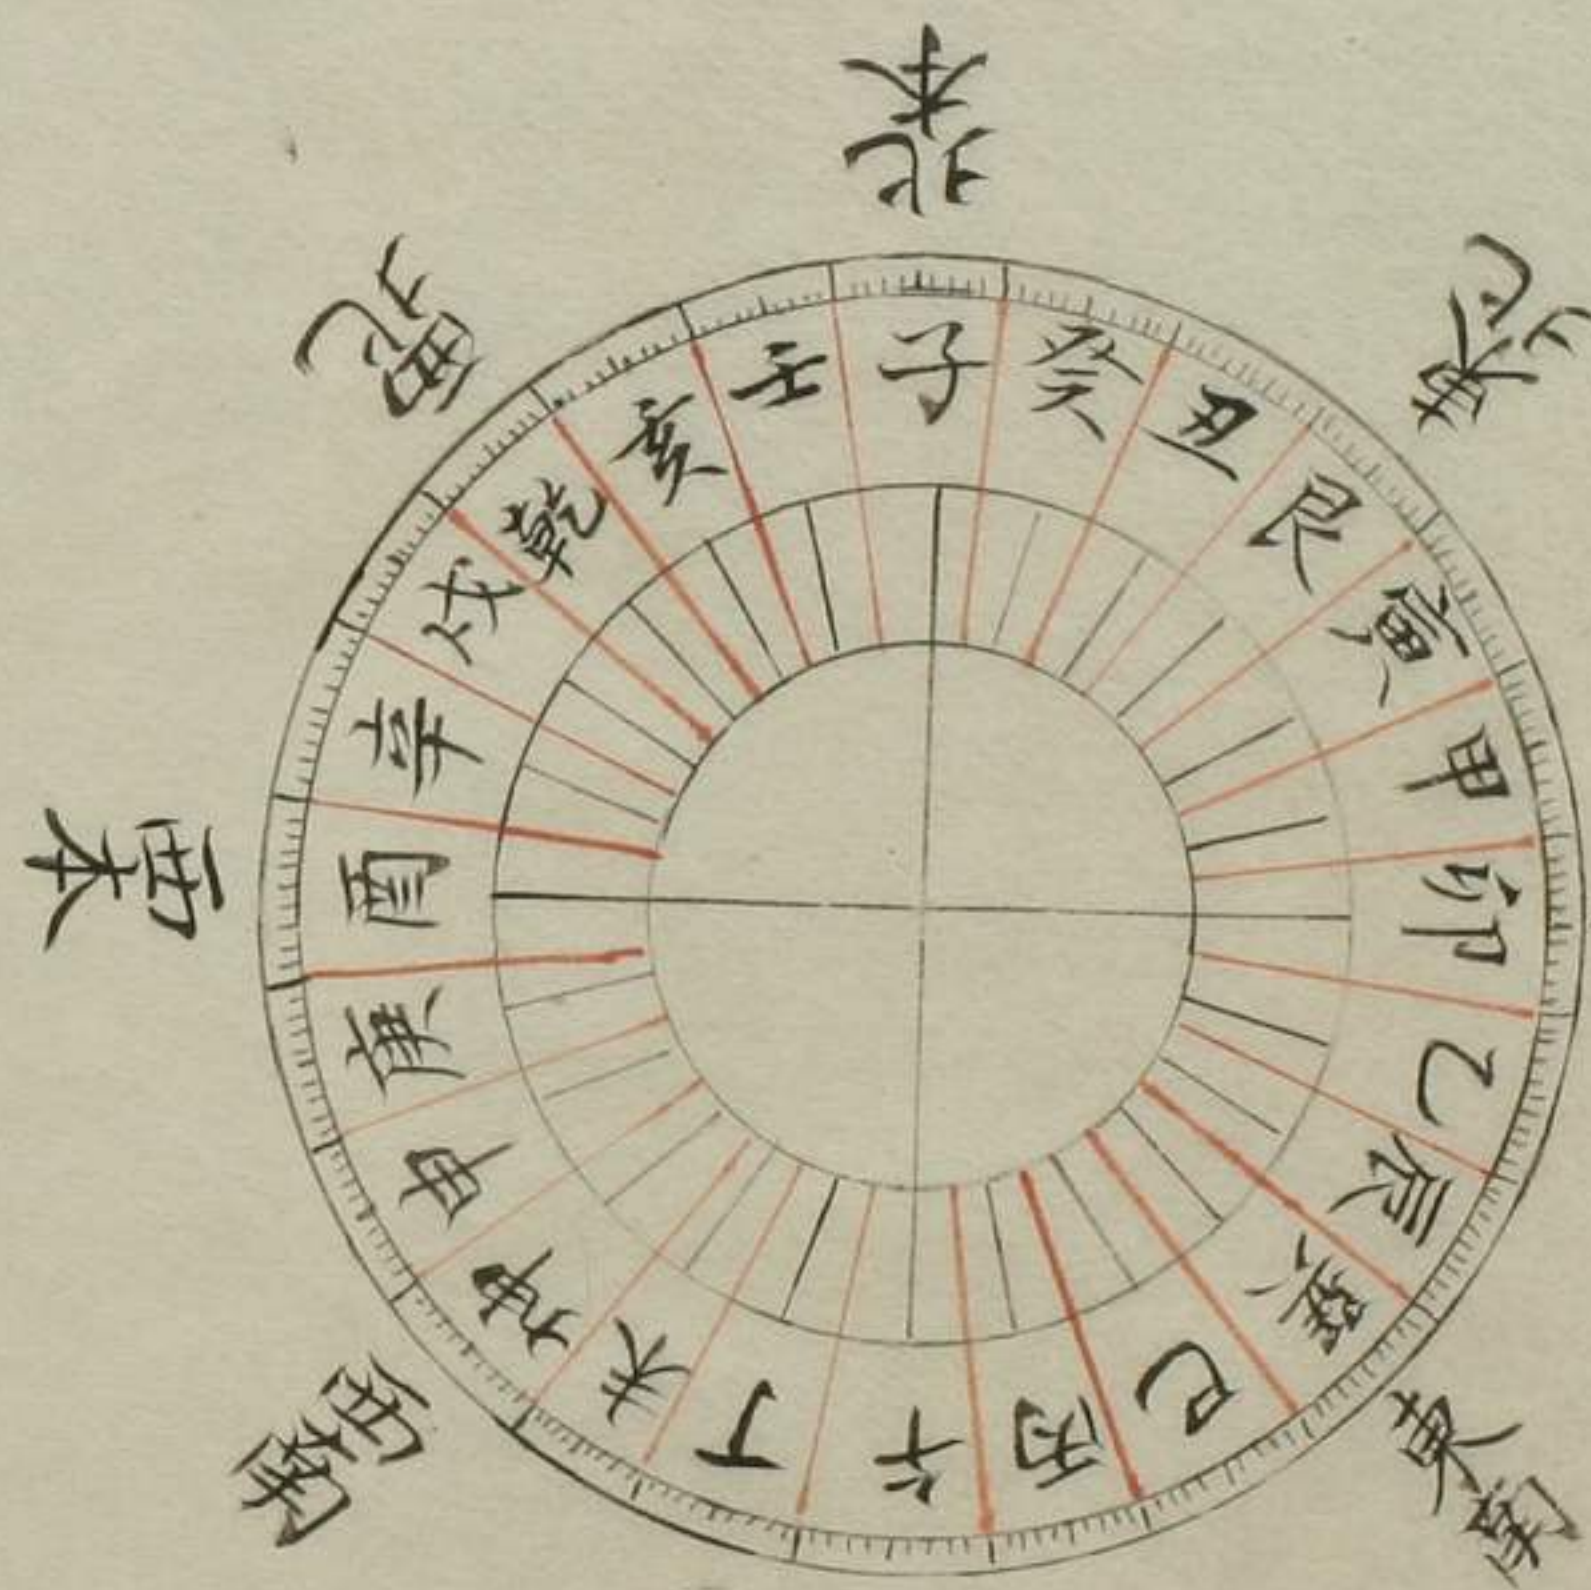 北本
東北
東南
西南
西本
西北
子
癸
丑
艮
寅
甲
卯
乙
辰
巽
巳
丙
午
丁
未
坤
申
庚
酉
辛
戌
乾
亥
壬